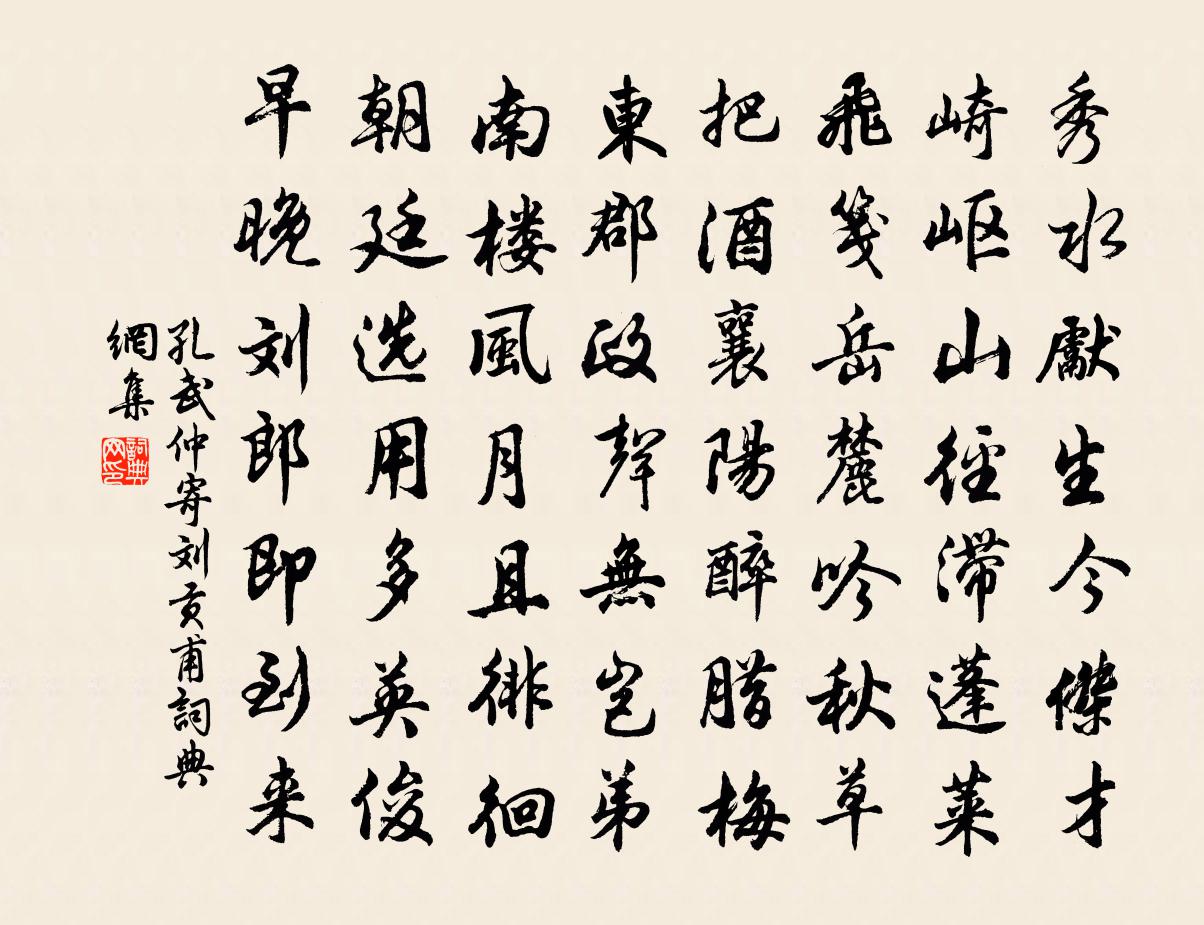 秀水獻生今傑才
崎岖山徑滯蓬萊
飛箋岳麓吟秋草
把酒襄陽醉腊梅
東郡政聲無岂弟
南楼風月且徘徊
朝廷选用多英俊
早晚刘郎即到来
孔武仲寄刘贡甫詞典
網集
詞典网印